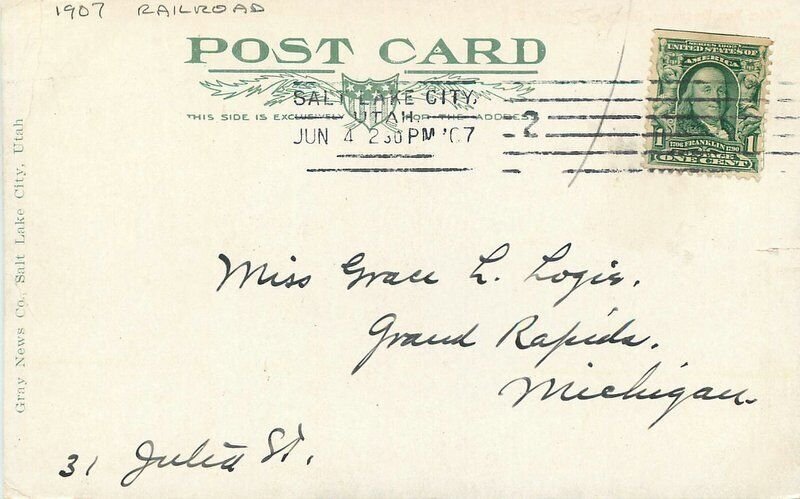 1907 RAILROAD
POST CARD
THIS SIDE IS EXCLUSIVELY FOR THE ADDRESS
SALT LAKE CITY,
UTAH.
JUN 4 230 PM '07
2
SERIES 1902
UNITED STATES OF
AMERICA
1706 FRANKLIN 1790
POSTAGE
1 1
ONE CENT
Gray News Co., Salt Lake City, Utah
Miss Grace L. Logie.
Grand Rapids.
Michigan.
31 Julia St.